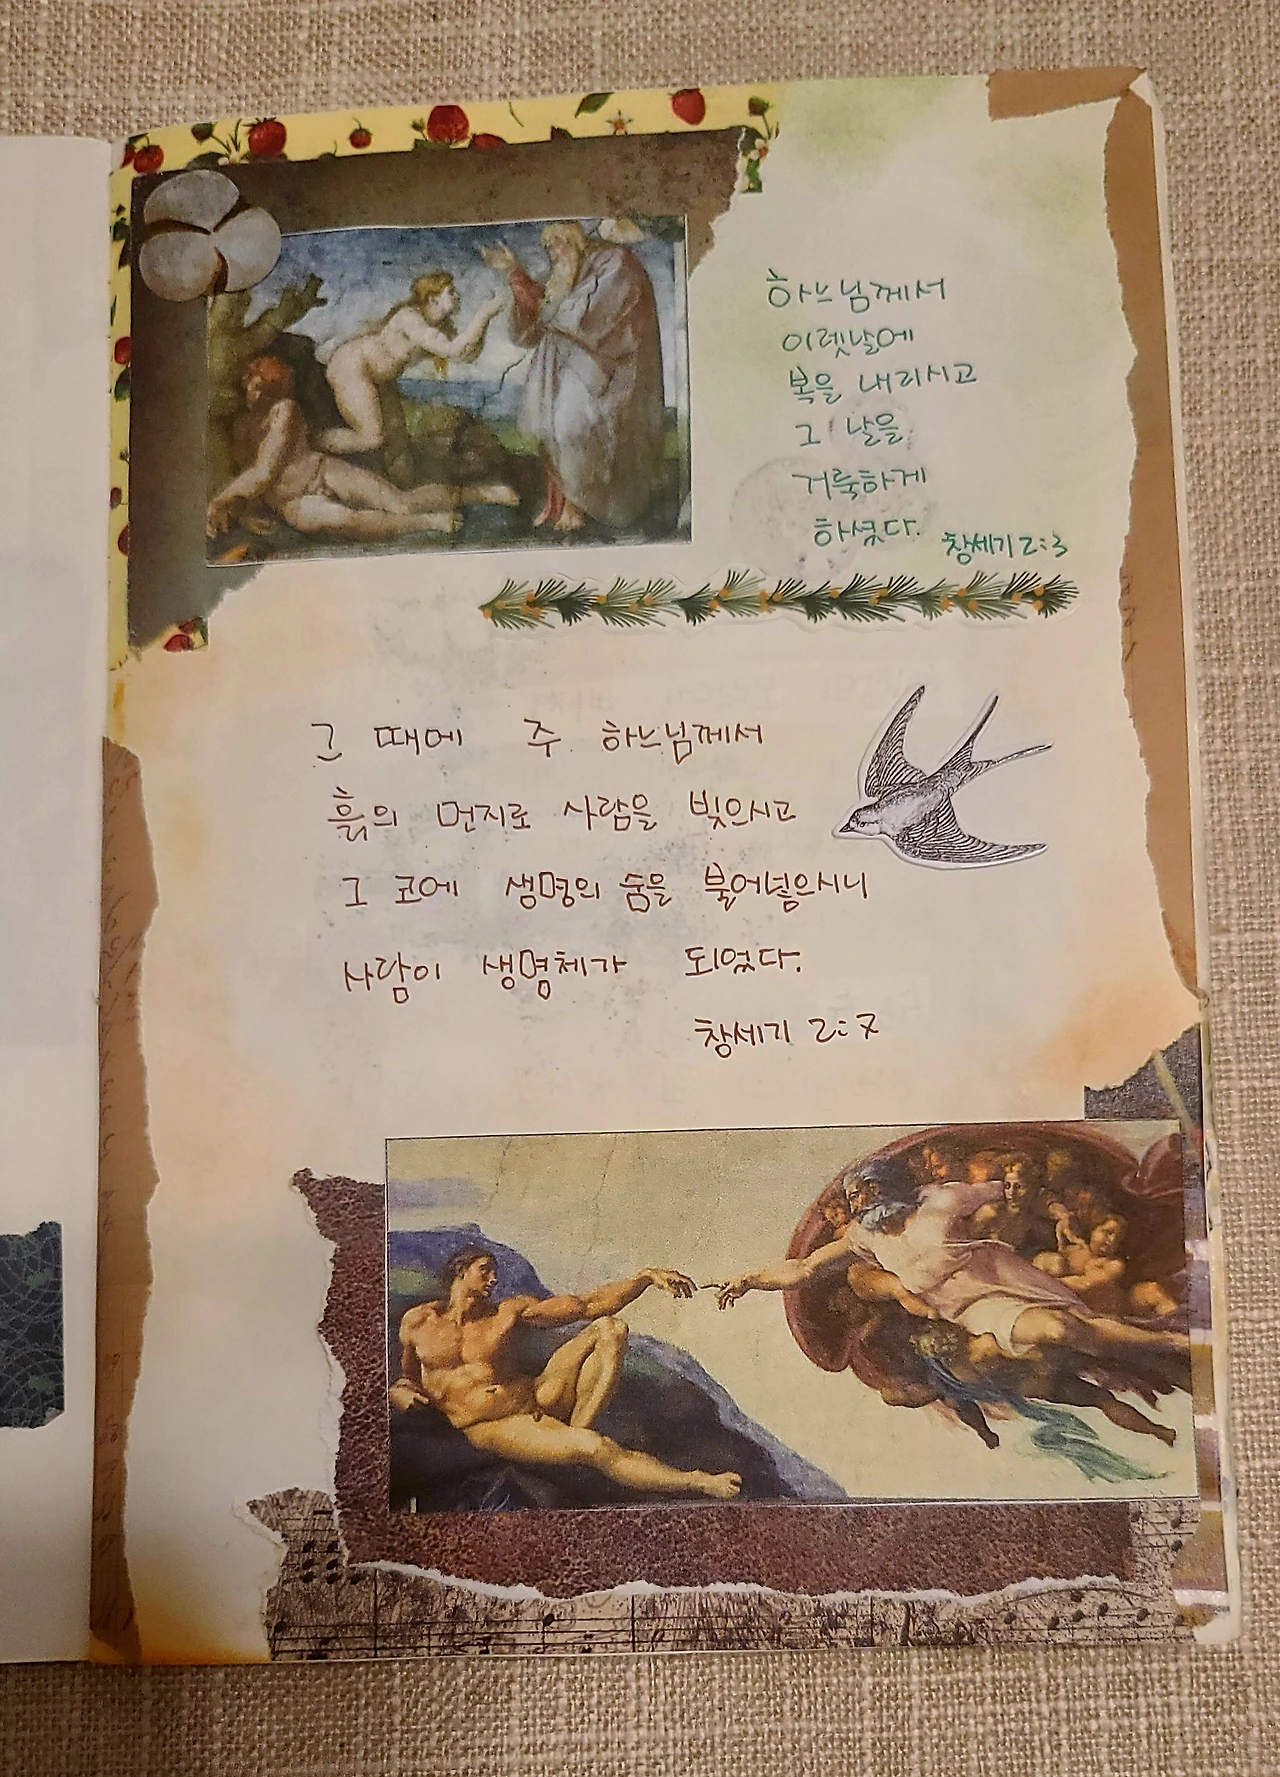 하느님께서
이렛날에
복을 내리시고
그 날을
거룩하게
하셨다.
창세기 2:3
그 때에 주 하느님께서
흙의 먼지로 사람을 빚으시고
그 코에 생명의 숨을 불어넣으시니
사람이 생명체가 되었다.
창세기 2:7